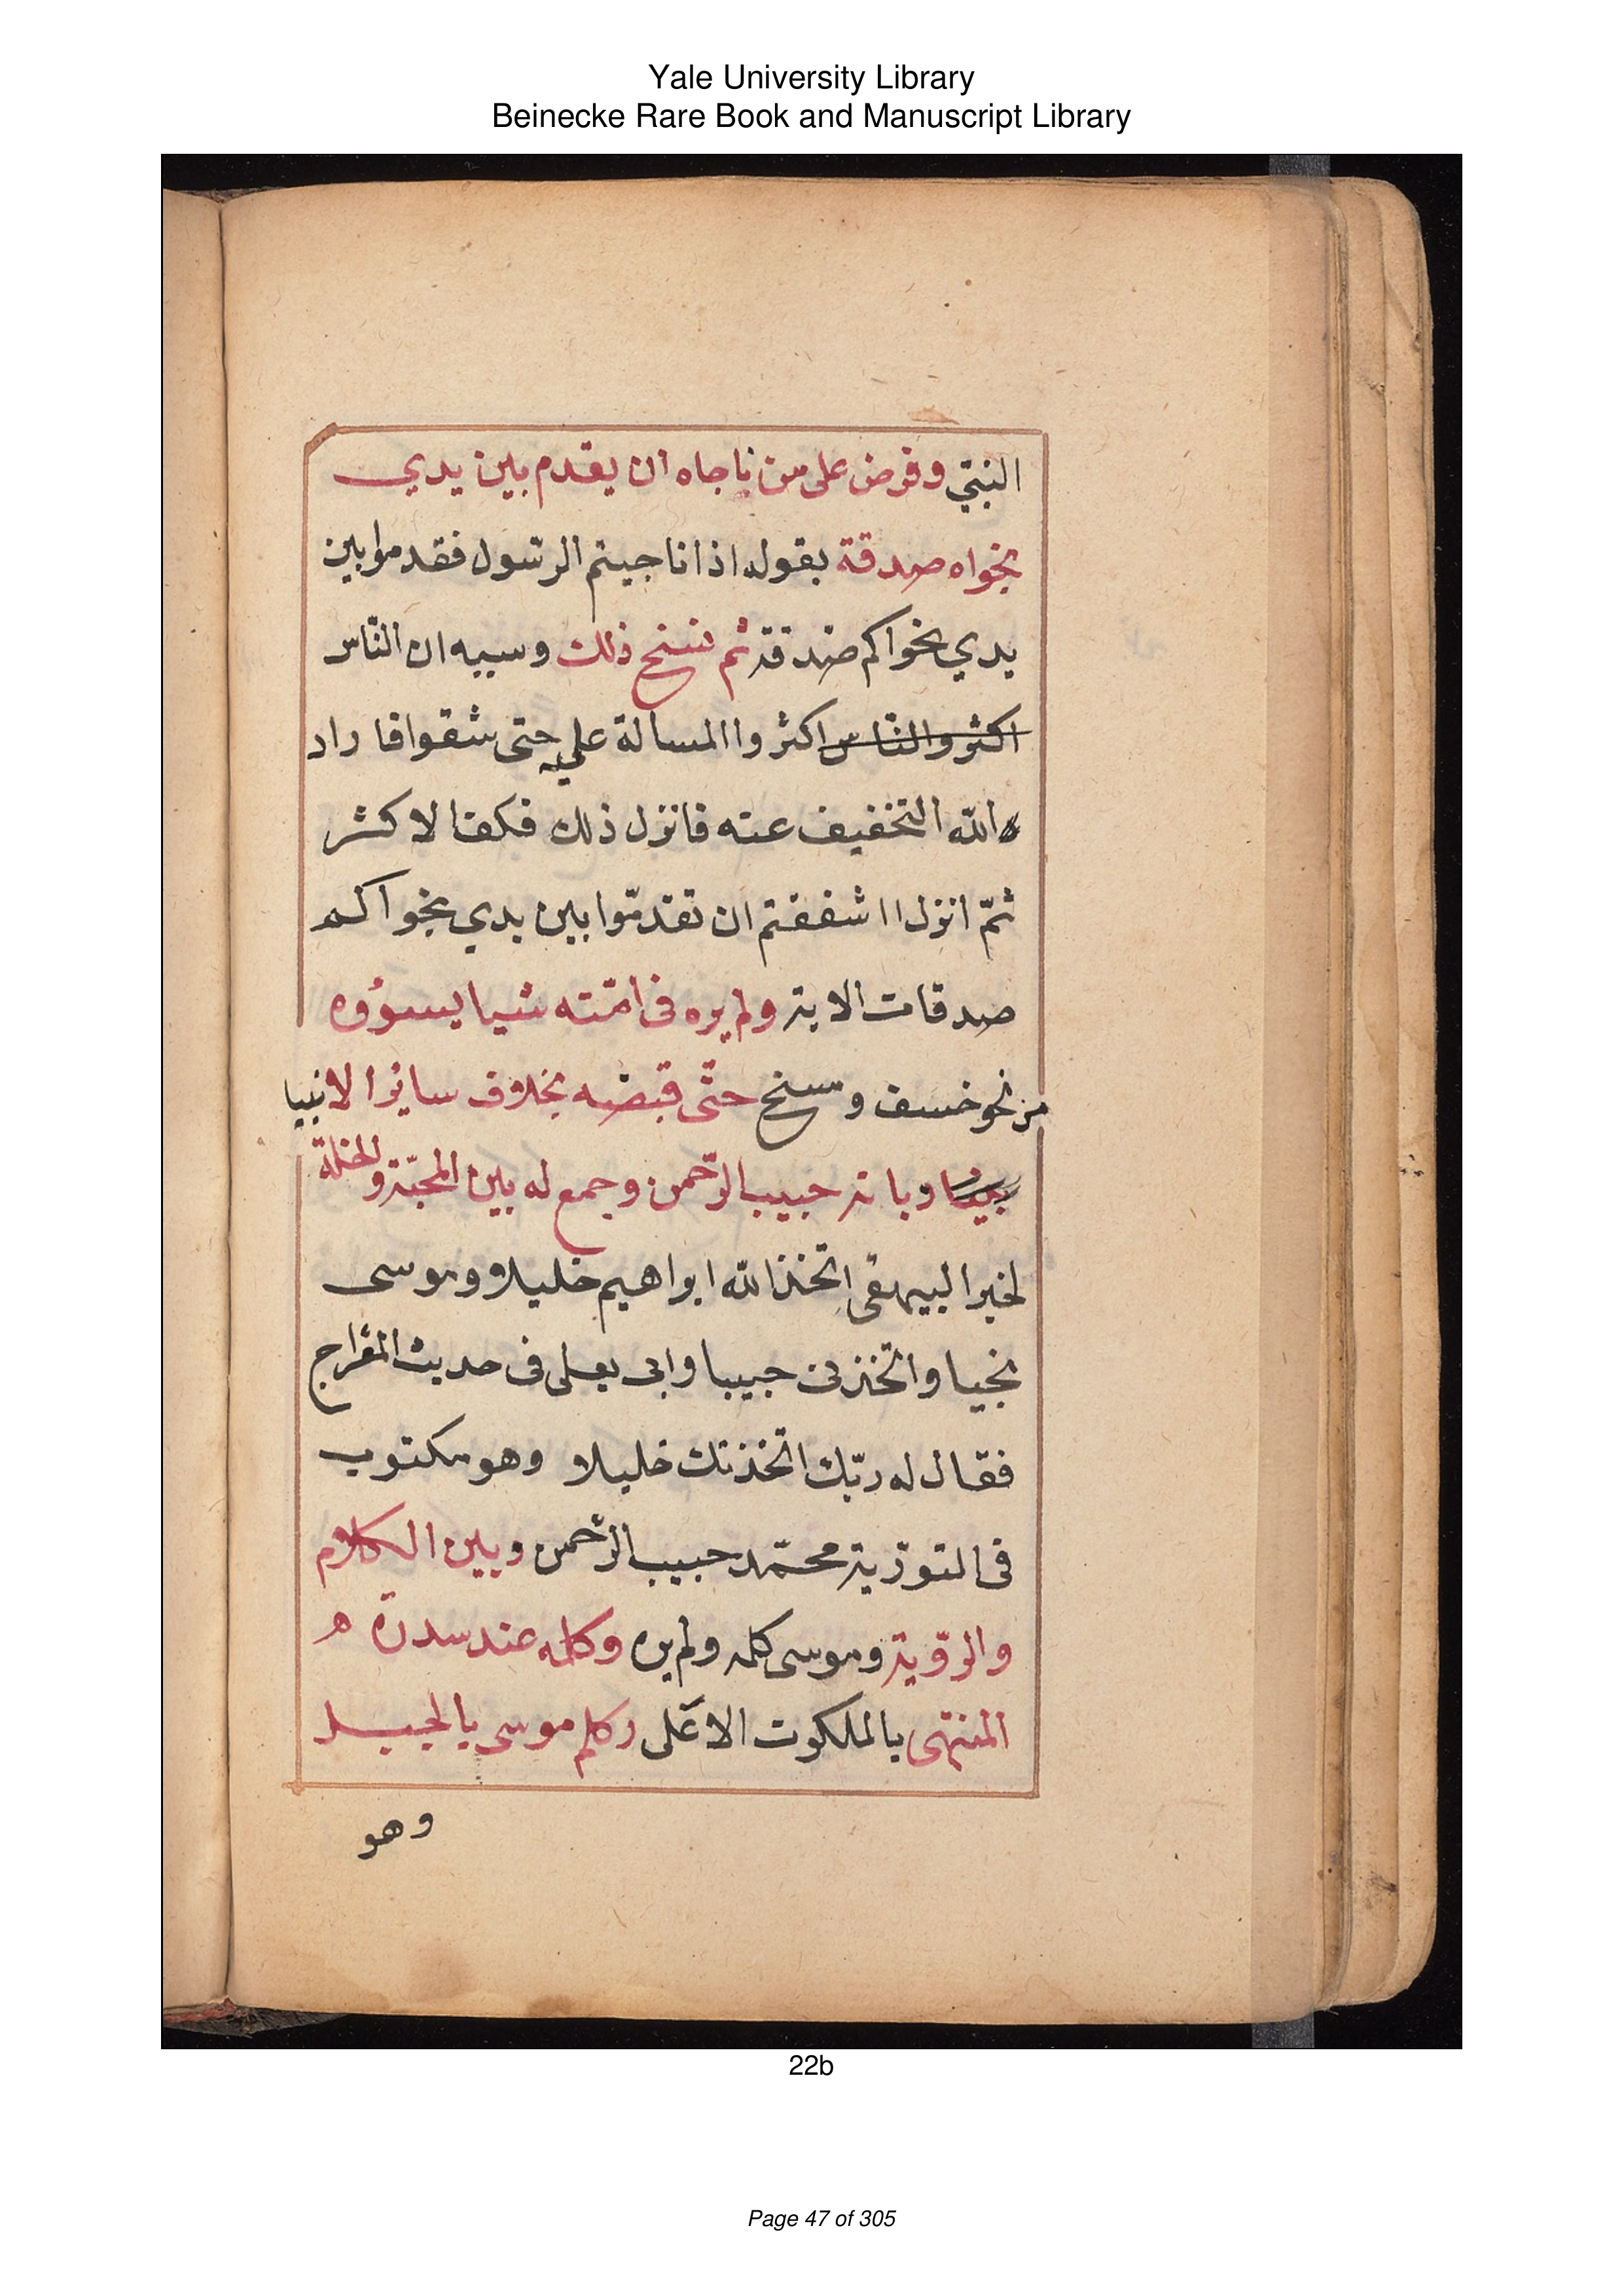 Yale University Library
Beinecke Rare Book and Manuscript Library
النبيّ وفرض على من ناجاه ان يقدم بين يدي
نجواه صدقة بقوله اذا ناجيتم الرسّول فقدموا بين
يدي نجواكم صدقة ثم نسخ ذلك وسببه ان النّاس
اكثروالنّاس اكثروا المسالة عليه حتى شقوا فاراد
الله التخفيف عنه فانزل ذلك فكف الاكثر
ثمّ انزل ااشفقتم ان تقدمّوا بين يدي نجواكم
صدقات الاية ولم يره فى امّته شيا يسوؤه
من نحو خسف ومسخ حتّى قبضه بخلاف سائر الانبيا
وبانه حبيب الرّحمن وجمع له بين المحبّة والخلة
لخبر البيهقى اتخذ الله ابراهيم خليلا وموسى
نجيا واتخذنى حبيبا وابى يعلى فى حديث المعراج
فقال له ربّك اتخذتك خليلا وهو مكتوب
فى التورية محمّد حبيب الرّحمن وبين الكلام
والرؤية وموسى كلمه ولم يره وكلمه عند سدرة ه
المنتهى بالملكوت الاعلى وكلم موسى بالجبل
وهو
22b
Page 47 of 305